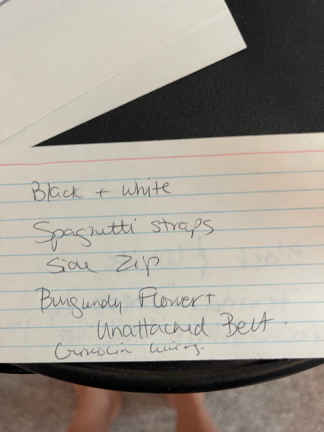 Black + white
Spaghetti straps
Side Zip
Burgundy Flower +
Unattached Belt.
Crinolin lining.